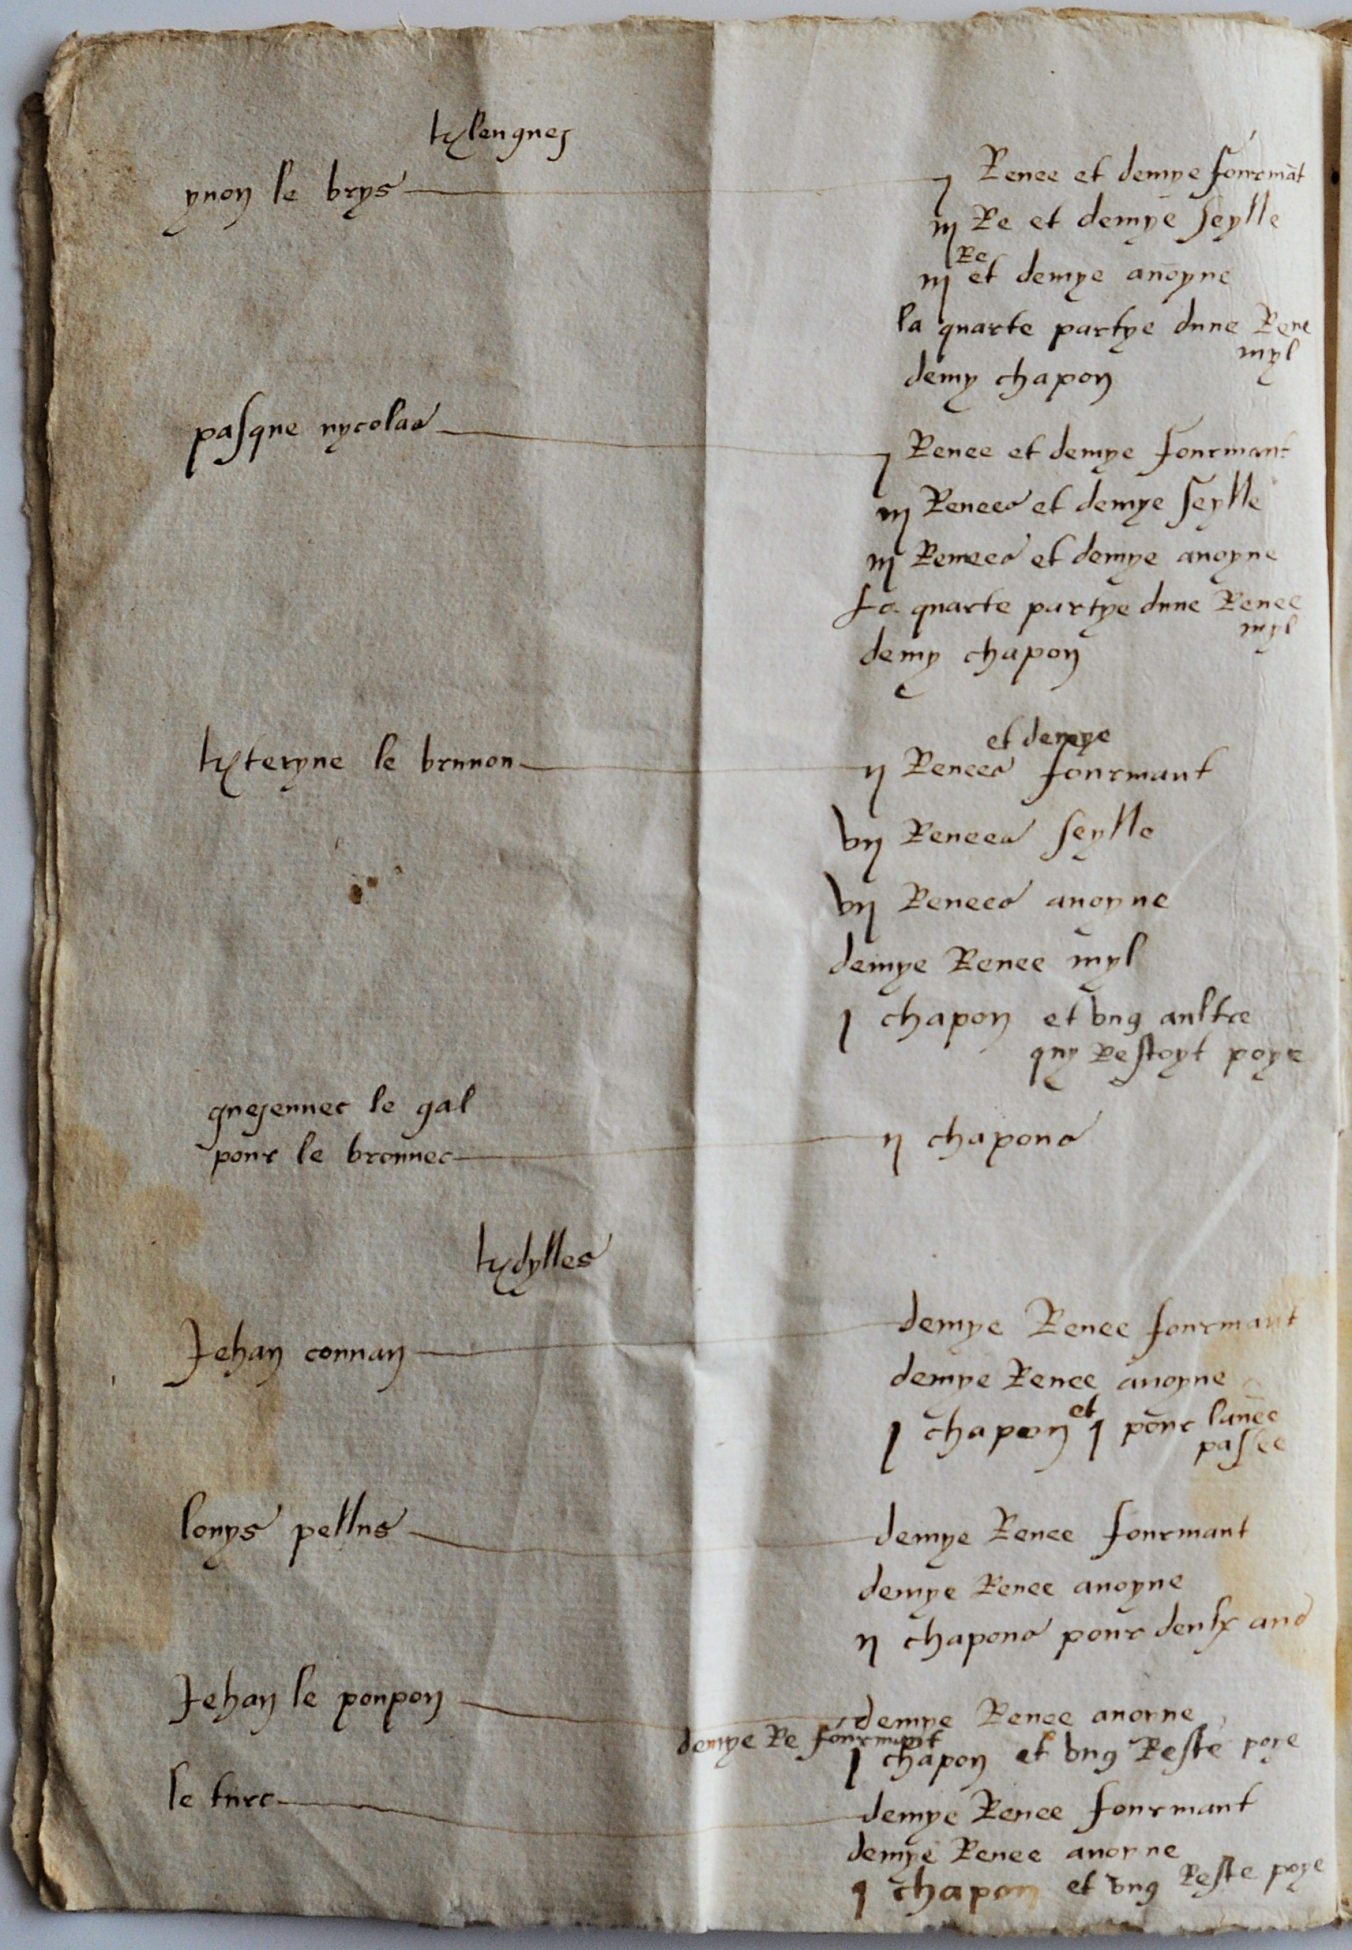 kerlengnes
yvon le brys j Renee et demye fourmāt
iij Re et demye seylle
iij Re et demye avoyne
la quarte partye dune Rene
myl
demy chapon
pasque nycolas j Renee et demye fourmant
iij Renees et demye seylle
iij Renees et demye avoyne
la quarte partye dune Renee
myl
demy chapon
et demye
kerteryne le brunon ij Renees fourmant
vij Renees seylle
vij Renees avoyne
demye Renee myl
j chapon et ung aultre
quy Restoyt poye
guejennec le gal
pour le bronnec ij chapons
kerdylles
Jehan connan demye Renee fourmant
demye Renee avoyne
j chapon et j pour lanee
pasee
louys pellus demye Renee fourmant
demye Renee avoyne
ij chapons pour deulx ans
Jehan le poupon demye Renee avoyne
demye Re fourmant
j chapon et ung Reste poye
le turc demye Renee fourmant
demye Renee avoyne
j chapon et ung Reste poye